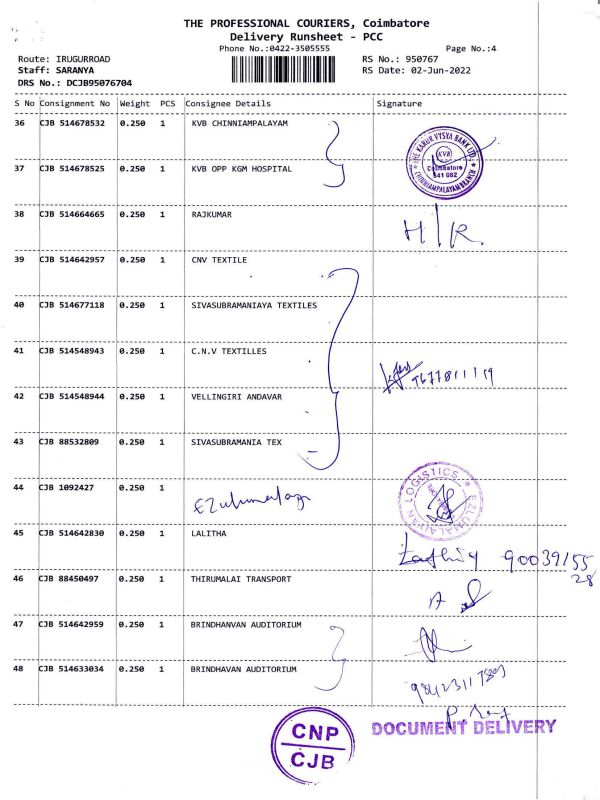 THE PROFESSIONAL COURIERS, Coimbatore
Delivery Runsheet - PCC
Phone No.:0422-3505555 Page No.:4
Route: IRUGURROAD RS No.: 950767
Staff: SARANYA RS Date: 02-Jun-2022
DRS No.: DCJB95076704
S No Consignment No Weight PCS Consignee Details Signature
36 CJB 514678532 0.250 1 KVB CHINNIAMPALAYAM
THE KARUR VYSYA BANK LTD.
KVB
Coimbatore
641 062
CHINNIAMPALAYAM BRANCH
37 CJB 514678525 0.250 1 KVB OPP KGM HOSPITAL
38 CJB 514664665 0.250 1 RAJKUMAR
H/R.
39 CJB 514642957 0.250 1 CNV TEXTILE
40 CJB 514677118 0.250 1 SIVASUBRAMANIAYA TEXTILES
41 CJB 514548943 0.250 1 C.N.V TEXTILLES
42 CJB 514548944 0.250 1 VELLINGIRI ANDAVAR
43 CJB 88532809 0.250 1 SIVASUBRAMANIA TEX
44 CJB 1092427 0.250 1
EZUMALAIYAN LOGISTICS
45 CJB 514642830 0.250 1 LALITHA
90039155
28
46 CJB 88450497 0.250 1 THIRUMALAI TRANSPORT
47 CJB 514642959 0.250 1 BRINDHANVAN AUDITORIUM
48 CJB 514633034 0.250 1 BRINDHAVAN AUDITORIUM
CNP
CJB
DOCUMENT DELIVERY